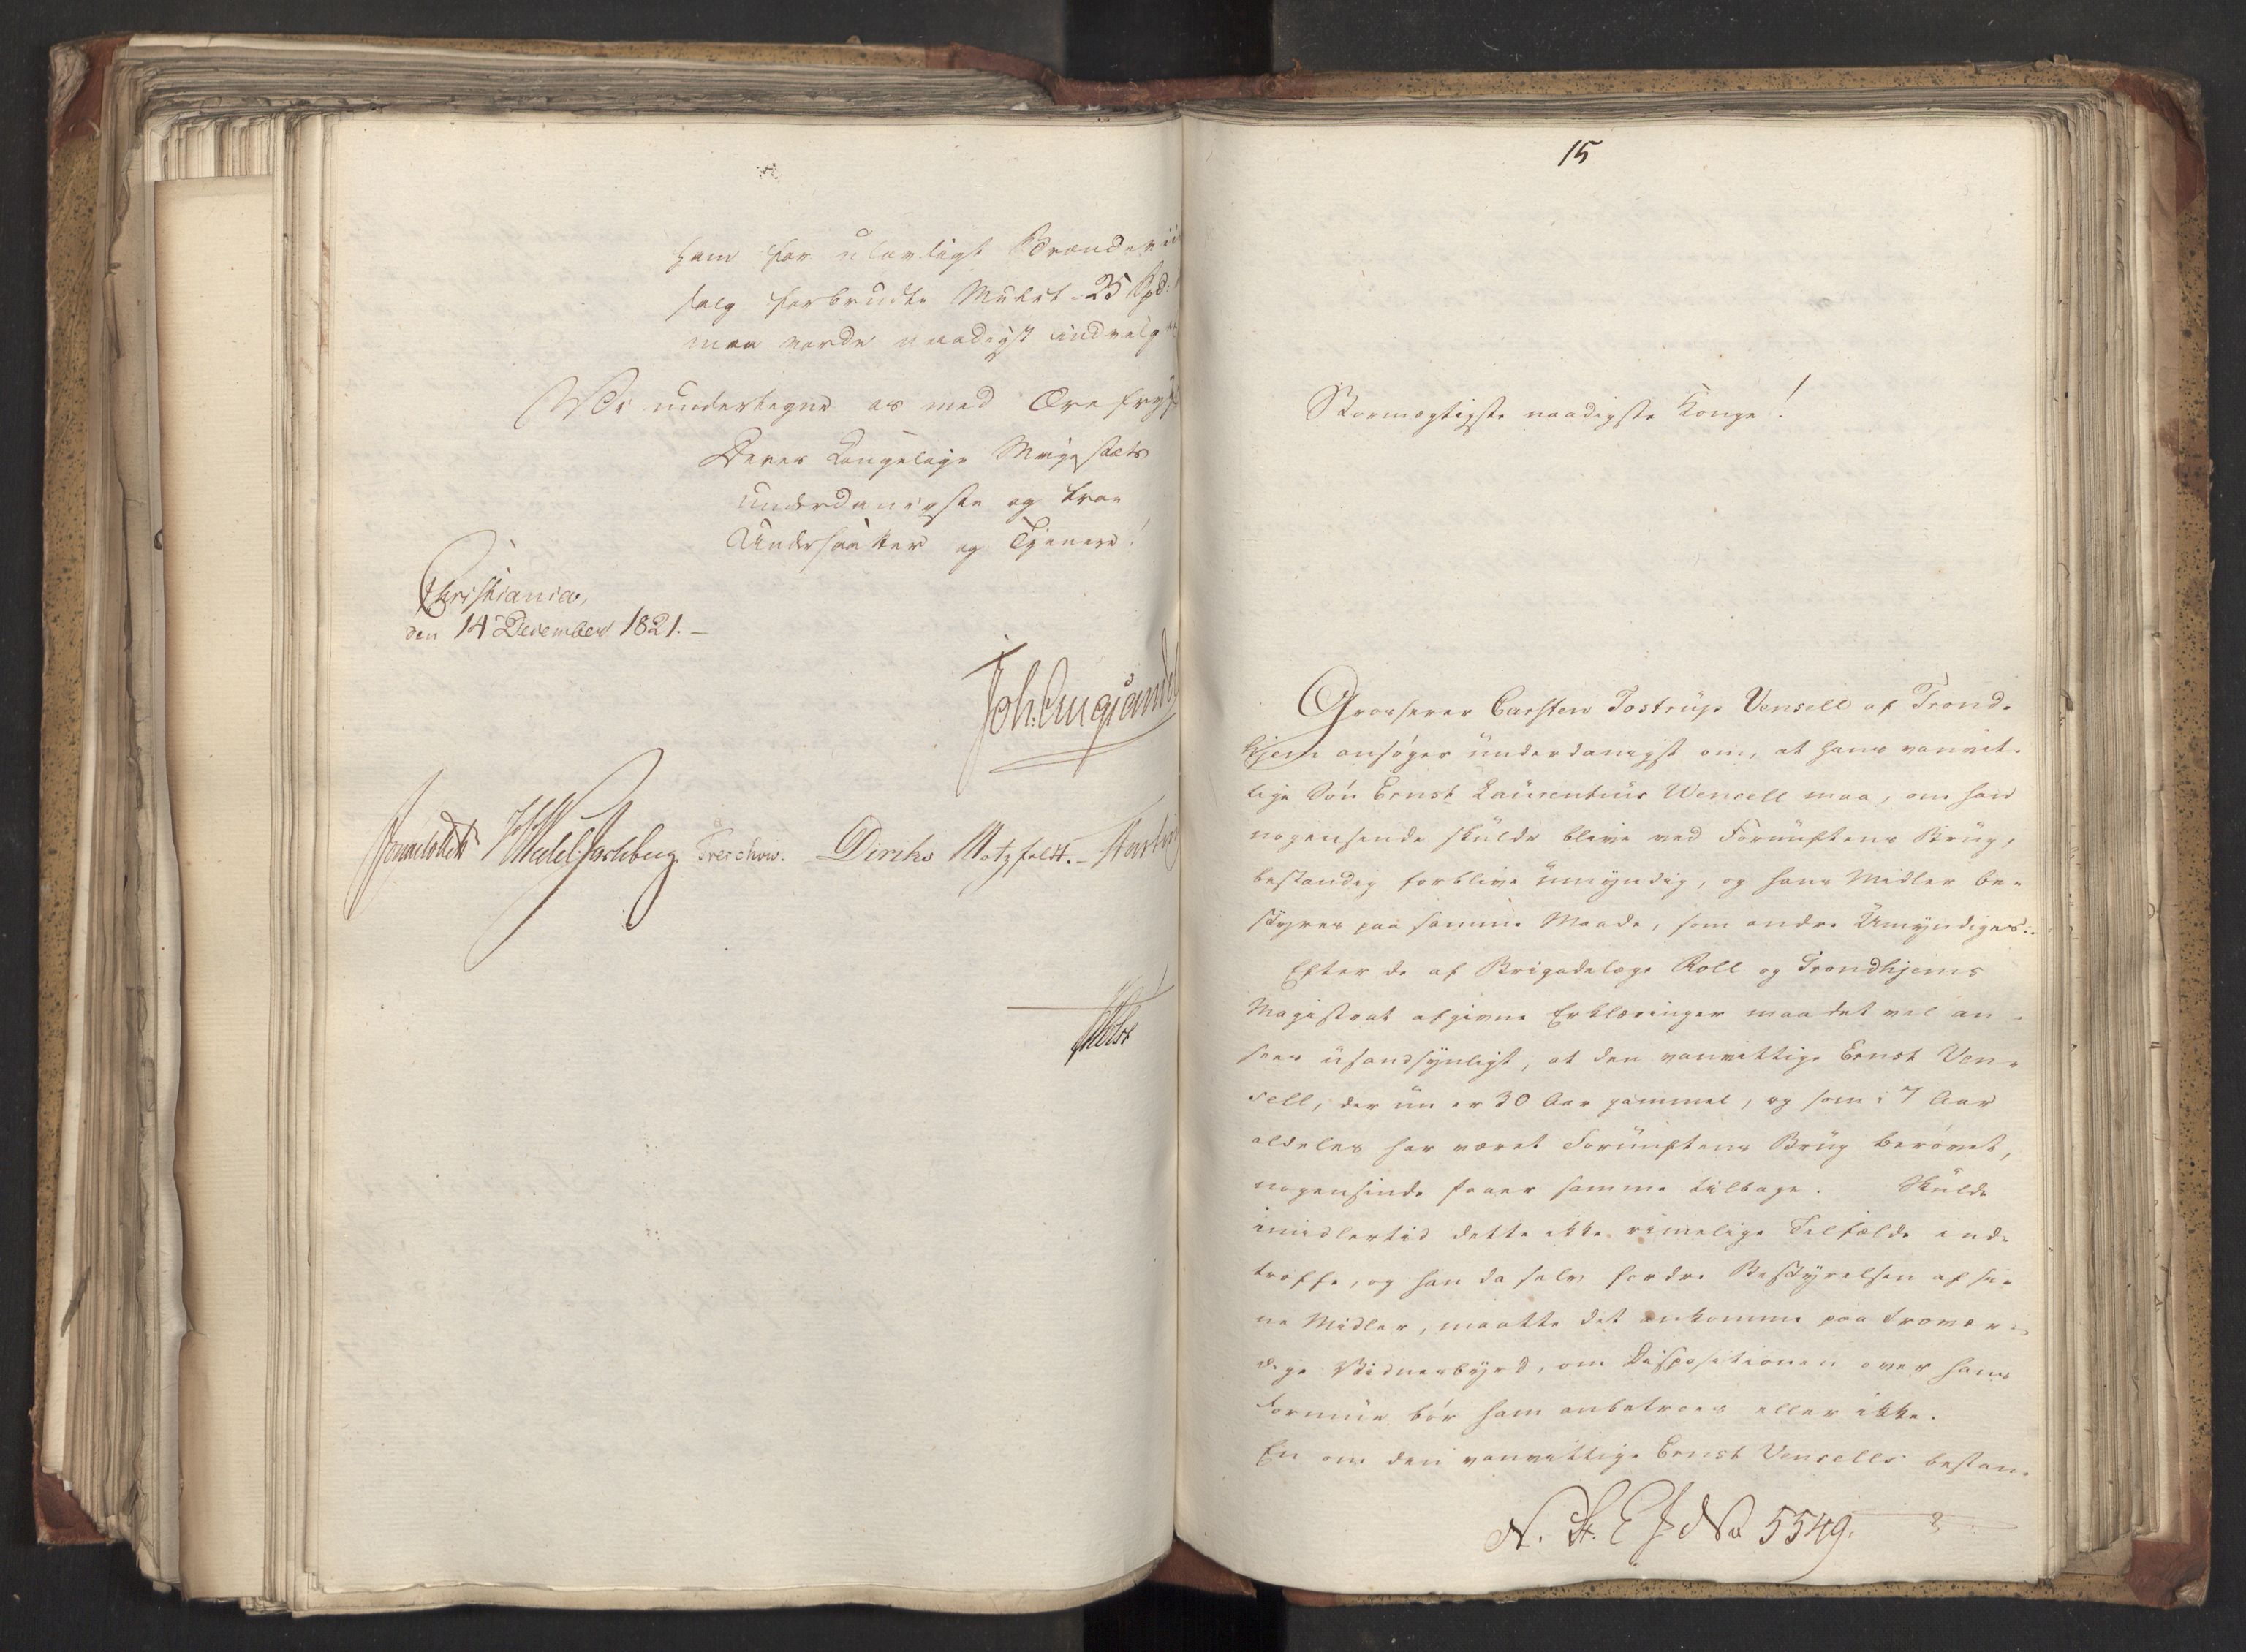 ham for ulovligt Brændeviin
salg forbrudte Mulct 25 Spd:
maa vorde naadigst indvilget
Vi undertegne os med Ærefrygt
Deres Kongelige Majestæts
underdanigste og troe
Undersaatter og Tjenere!
Christiania,
den 14 December 1821.-
Joh. Aug: Sandels
Sommerhielm HWedel Jarlsberg. Treschow. Diriks Motzfeldt.- Fasting
Holst
15
Stormægtigste naadigste Konge!
Grosserer Carsten Tostrup Vensell af Trond-
hjem ansøger underdanigst om, at hans vanvit-
tige Søn Ernst Laurentius Wensell maa, om han
nogensinde skulde blive ved Fornuftens Brug,
bestandig forblive umyndig, og hans Midler be-
styres paa samme Maade, som andre Umyndiges.
Efter de af Brigadelæge Roll og Trondhjems
Magistrat afgivne Erklæringer maa det vel an-
sees usandsynligt, at den vanvittige Ernst Ven-
sell, der nu er 30 Aar gammel, og som i 7 Aar
aldeles har været Fornuftens Brug berøvet,
nogensinde faaer samme tilbage. Skulde
imidlertid dette ikke rimelige Tilfælde ind-
træffe, og han da selv fordre Bestyrelsen af si-
ne Midler, maatte det ankomme paa troevær-
dige Vidnesbyrd, om Dispositionen over hans
Formue bør ham anbetroes eller ikke.
En om den vanvittige Ernst Vensells bestan-
N. St. E J No 5549. 2